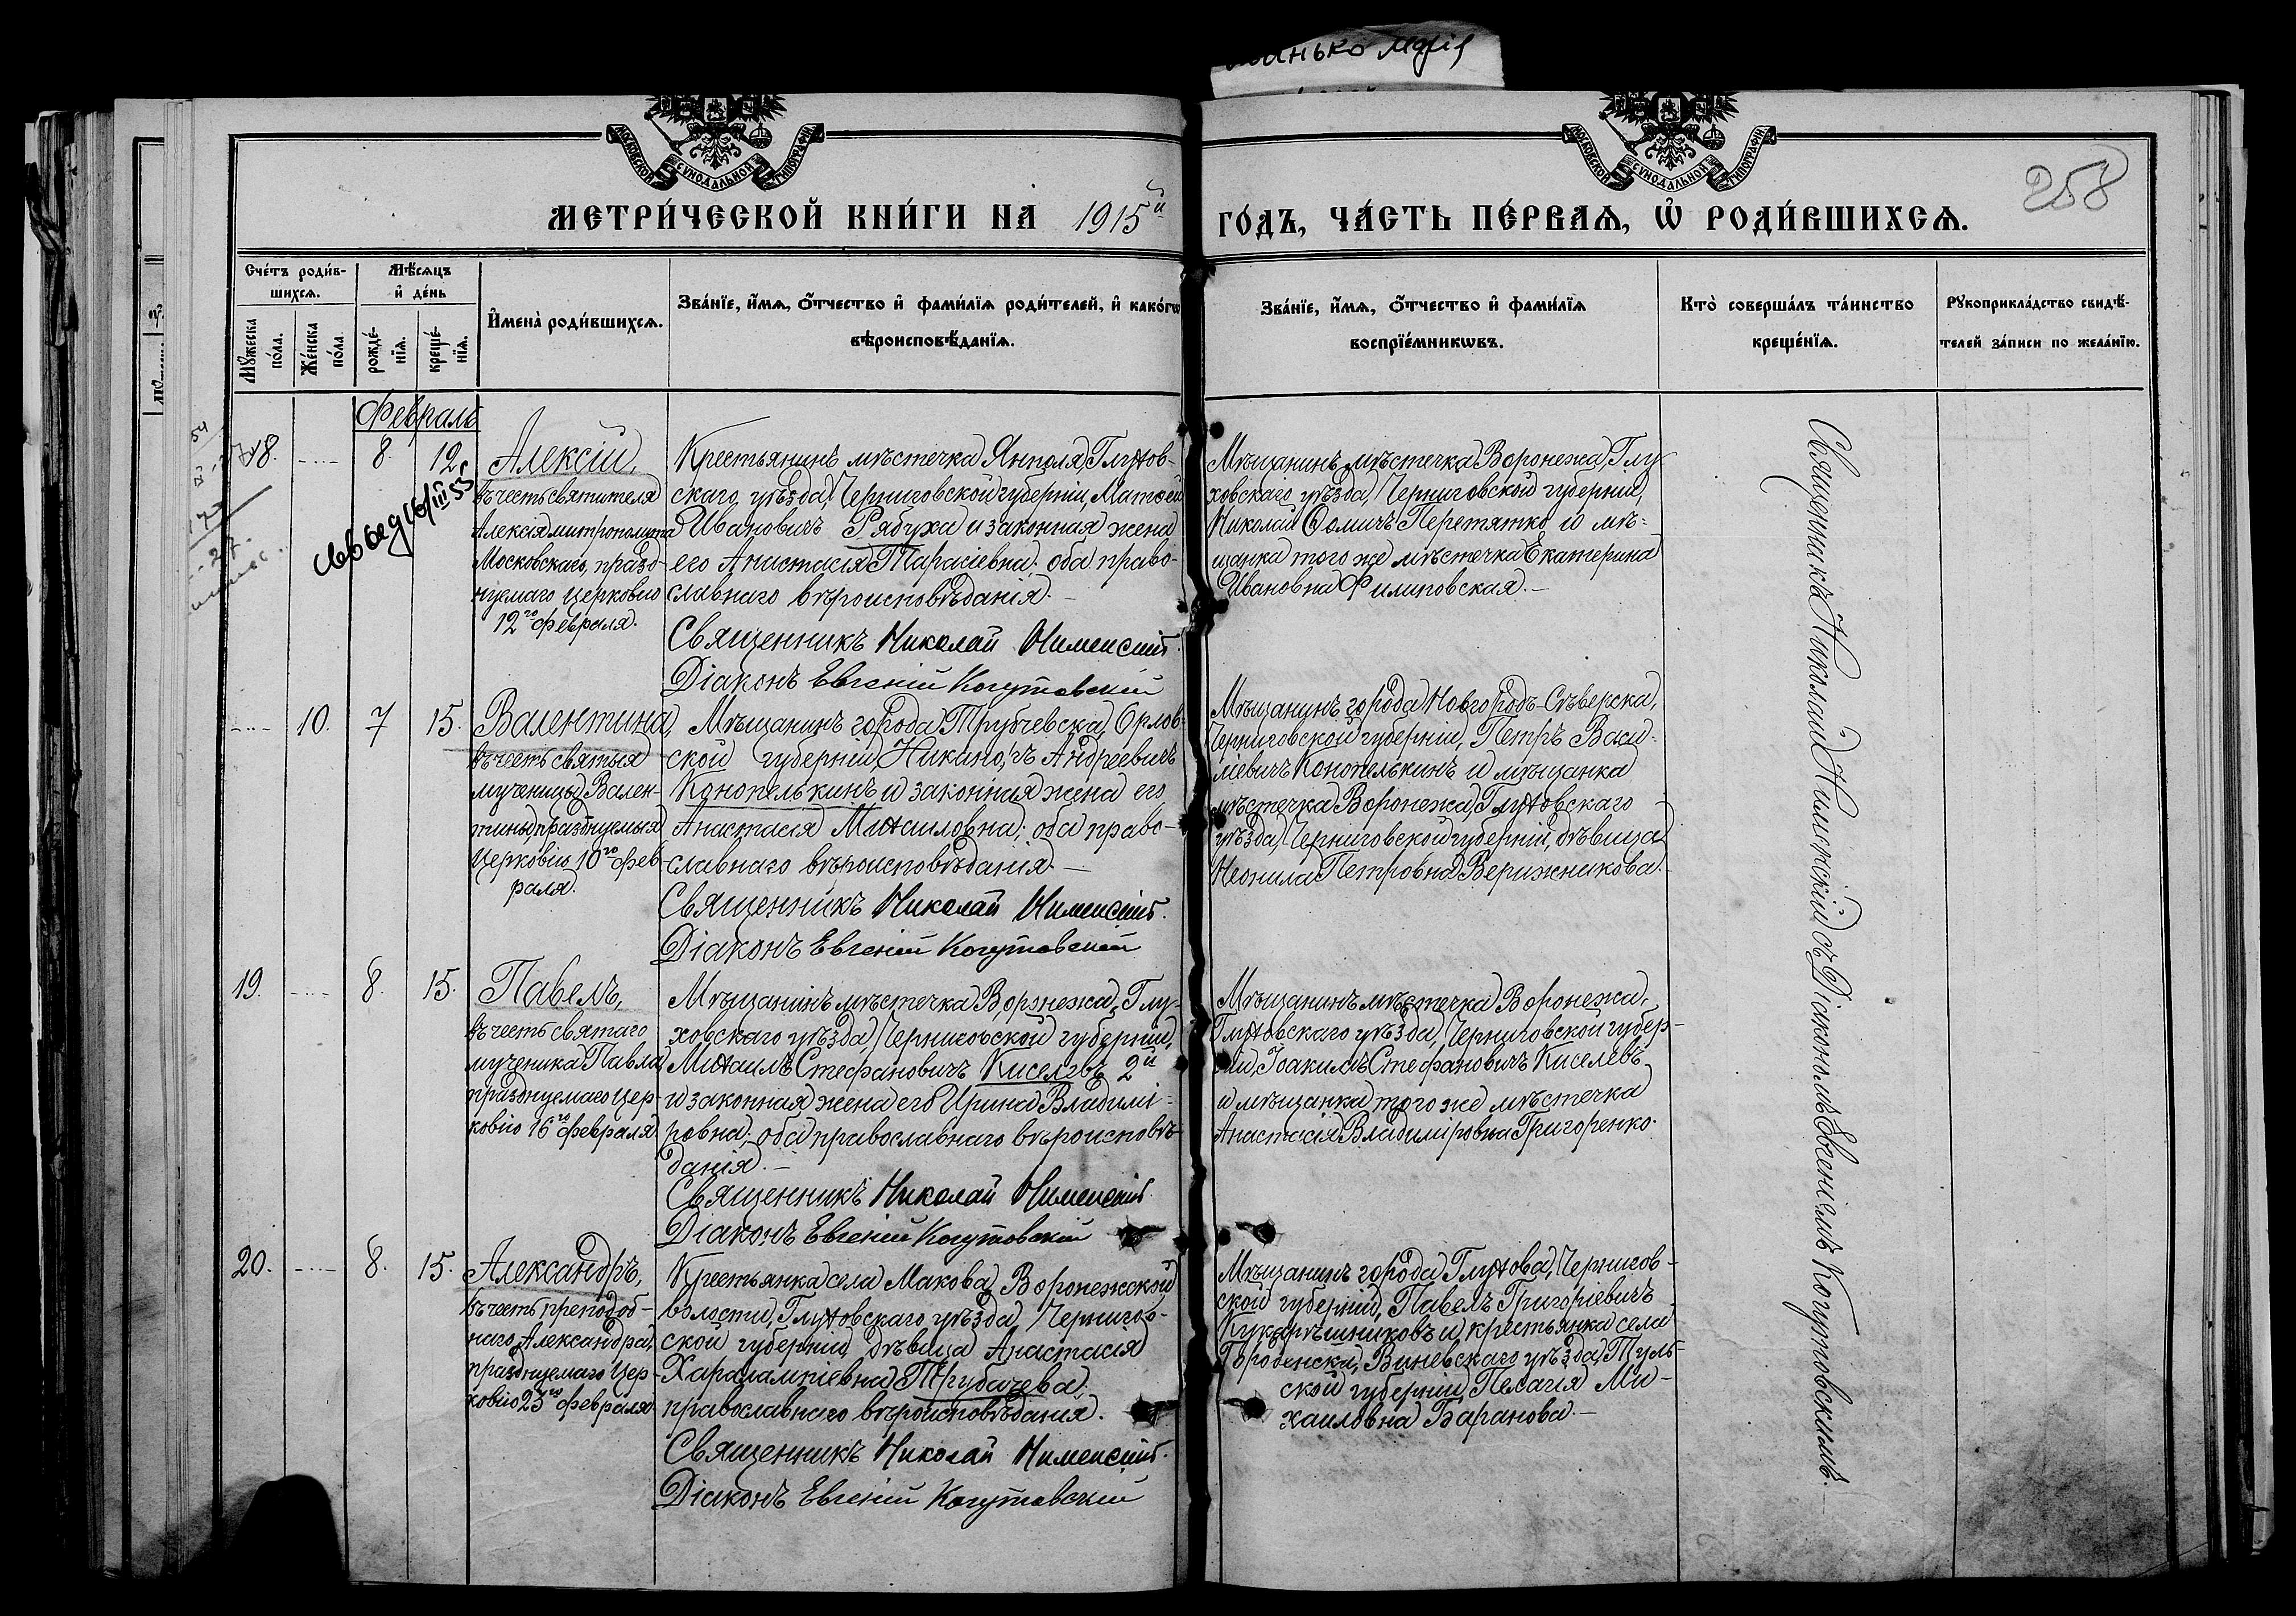 МОСКОВСКОЙ СѴНОДАЛЬНОЙ ТИПОГРАФІИ
МОСКОВСКОЙ СѴНОДАЛЬНОЙ ТИПОГРАФІИ
258
МЕТРИ́ЧЕСКОЙ КНИ́ГИ НА 1915й ГО́ДЪ, ЧА́СТЬ ПЕ́РВАѦ, Ѡ҆ РОДИ́ВШИХСѦ.
Сче́тъ роди́в-
шихсѧ.
Мꙋ́жеска по́ла.
Же́нска по́ла
Мѣ́сѧцъ
и҆ де́нь
рожде́-нїѧ.
креще́-нїѧ.
И҆мена̀ роди́вшихсѧ.
Зва́нїе, и҆́мѧ, ѻ҆́тчество и҆ фами́лїѧ роди́телей, и҆ како́гѡ
вѣроисповѣ́данїѧ.
Зва́нїе, и҆́мѧ, ѻ҆́тчество и҆ фами́лїѧ
воспрїе́мникѡвъ.
Кто̀ соверша́лъ та́инство
креще́нїѧ.
Рꙋкоприкла́дство свидѣ́-
телей за́писи по жела́нїю.
Февраль
18. 8. 12.
Алексій,
въ честь святителя
Алексія митрополита
Московскаго, празд-
нуемаго церковію
12го февраля.
Крестьянинъ мѣстечка Янполя, Глухов-
скаго уѣзда, Черниговской губерніи, Матѳей
Ивановичъ Рябуха и законная жена
его Анастасія Тарасіевна; оба право-
славнаго вѣроисповѣданія. —
Священникъ Николай
Діаконъ Евгеній Когутовскій
Мѣщанинъ мѣстечка Воронежа, Глу-
ховскаго уѣзда, Черниговской губерніи,
Николай Ѳомичъ Перетятко и мѣ-
щанка того же мѣстечка Екатерина
Ивановна Филиповская. —
10. 7 15.
Валентина,
въ честь святыя
мученицы Вален-
тины, празднуемыя
церковію 10го фев-
раля.
Мѣщанинъ города Трубчевска, Орлов-
ской губерніи, Никаноръ Андреевичъ
Конопелькинъ и законная жена его
Анастасія Михаиловна; оба право-
славнаго вѣроисповѣданія. —
Священникъ Николай
Діаконъ Евгеній Когутовскій
Мѣщанинъ города Новгородъ-Сѣверска,
Черниговской губерніи, Петръ Васи-
ліевичъ Конопелькинъ и мѣщанка
мѣстечка Воронежа, Глуховскаго
уѣзда, Черниговской губерніи, дѣвица
Неонила Петровна Верижникова. —
19. 8. 15.
Павелъ,
въ честь святаго
мученика Павла,
празднуемаго цер-
ковію 16го февраля
Мѣщанинъ мѣстечка Воронежа, Глу-
ховскаго уѣзда, Черниговской губерніи,
Михаилъ Стефановичъ Киселевъ 2й
и законная жена его Ирина Владимі-
ровна; оба православнаго вѣроисповѣ-
данія. —
Священникъ Николай
Діаконъ Евгеній Когутовскій
Мѣщанинъ мѣстечка Воронежа,
Глуховскаго уѣзда, Черниговской губер-
ніи, Іоакимъ Стефановичъ Киселевъ
и мѣщанка того же мѣстечка
Анастасія Владиміровна Григоренко.
20. 8. 15.
Александръ,
въ честь преподоб-
наго Александра,
празднуемаго цер-
ковію 23го февраля.
Крестьянка села Макова, Воронежской
волости, Глуховскаго уѣзда, Чернигов-
ской губерніи, дѣвица Анастасія
Харалампіевна Трубачева;
православнаго вѣроисповѣданія.
Священникъ Николай
Діаконъ Евгеній Когутовскій
Мѣщанинъ города Глухова, Чернигов-
ской губерніи, Павелъ Григоріевичъ
и крестьянка села
Городенска, Виневскаго уѣзда, Туль-
ской губерніи, Пелагія Ми-
хаиловна Баранова. —
Священникъ Николай съ Діакономъ Евгеніемъ Когутовскимъ.